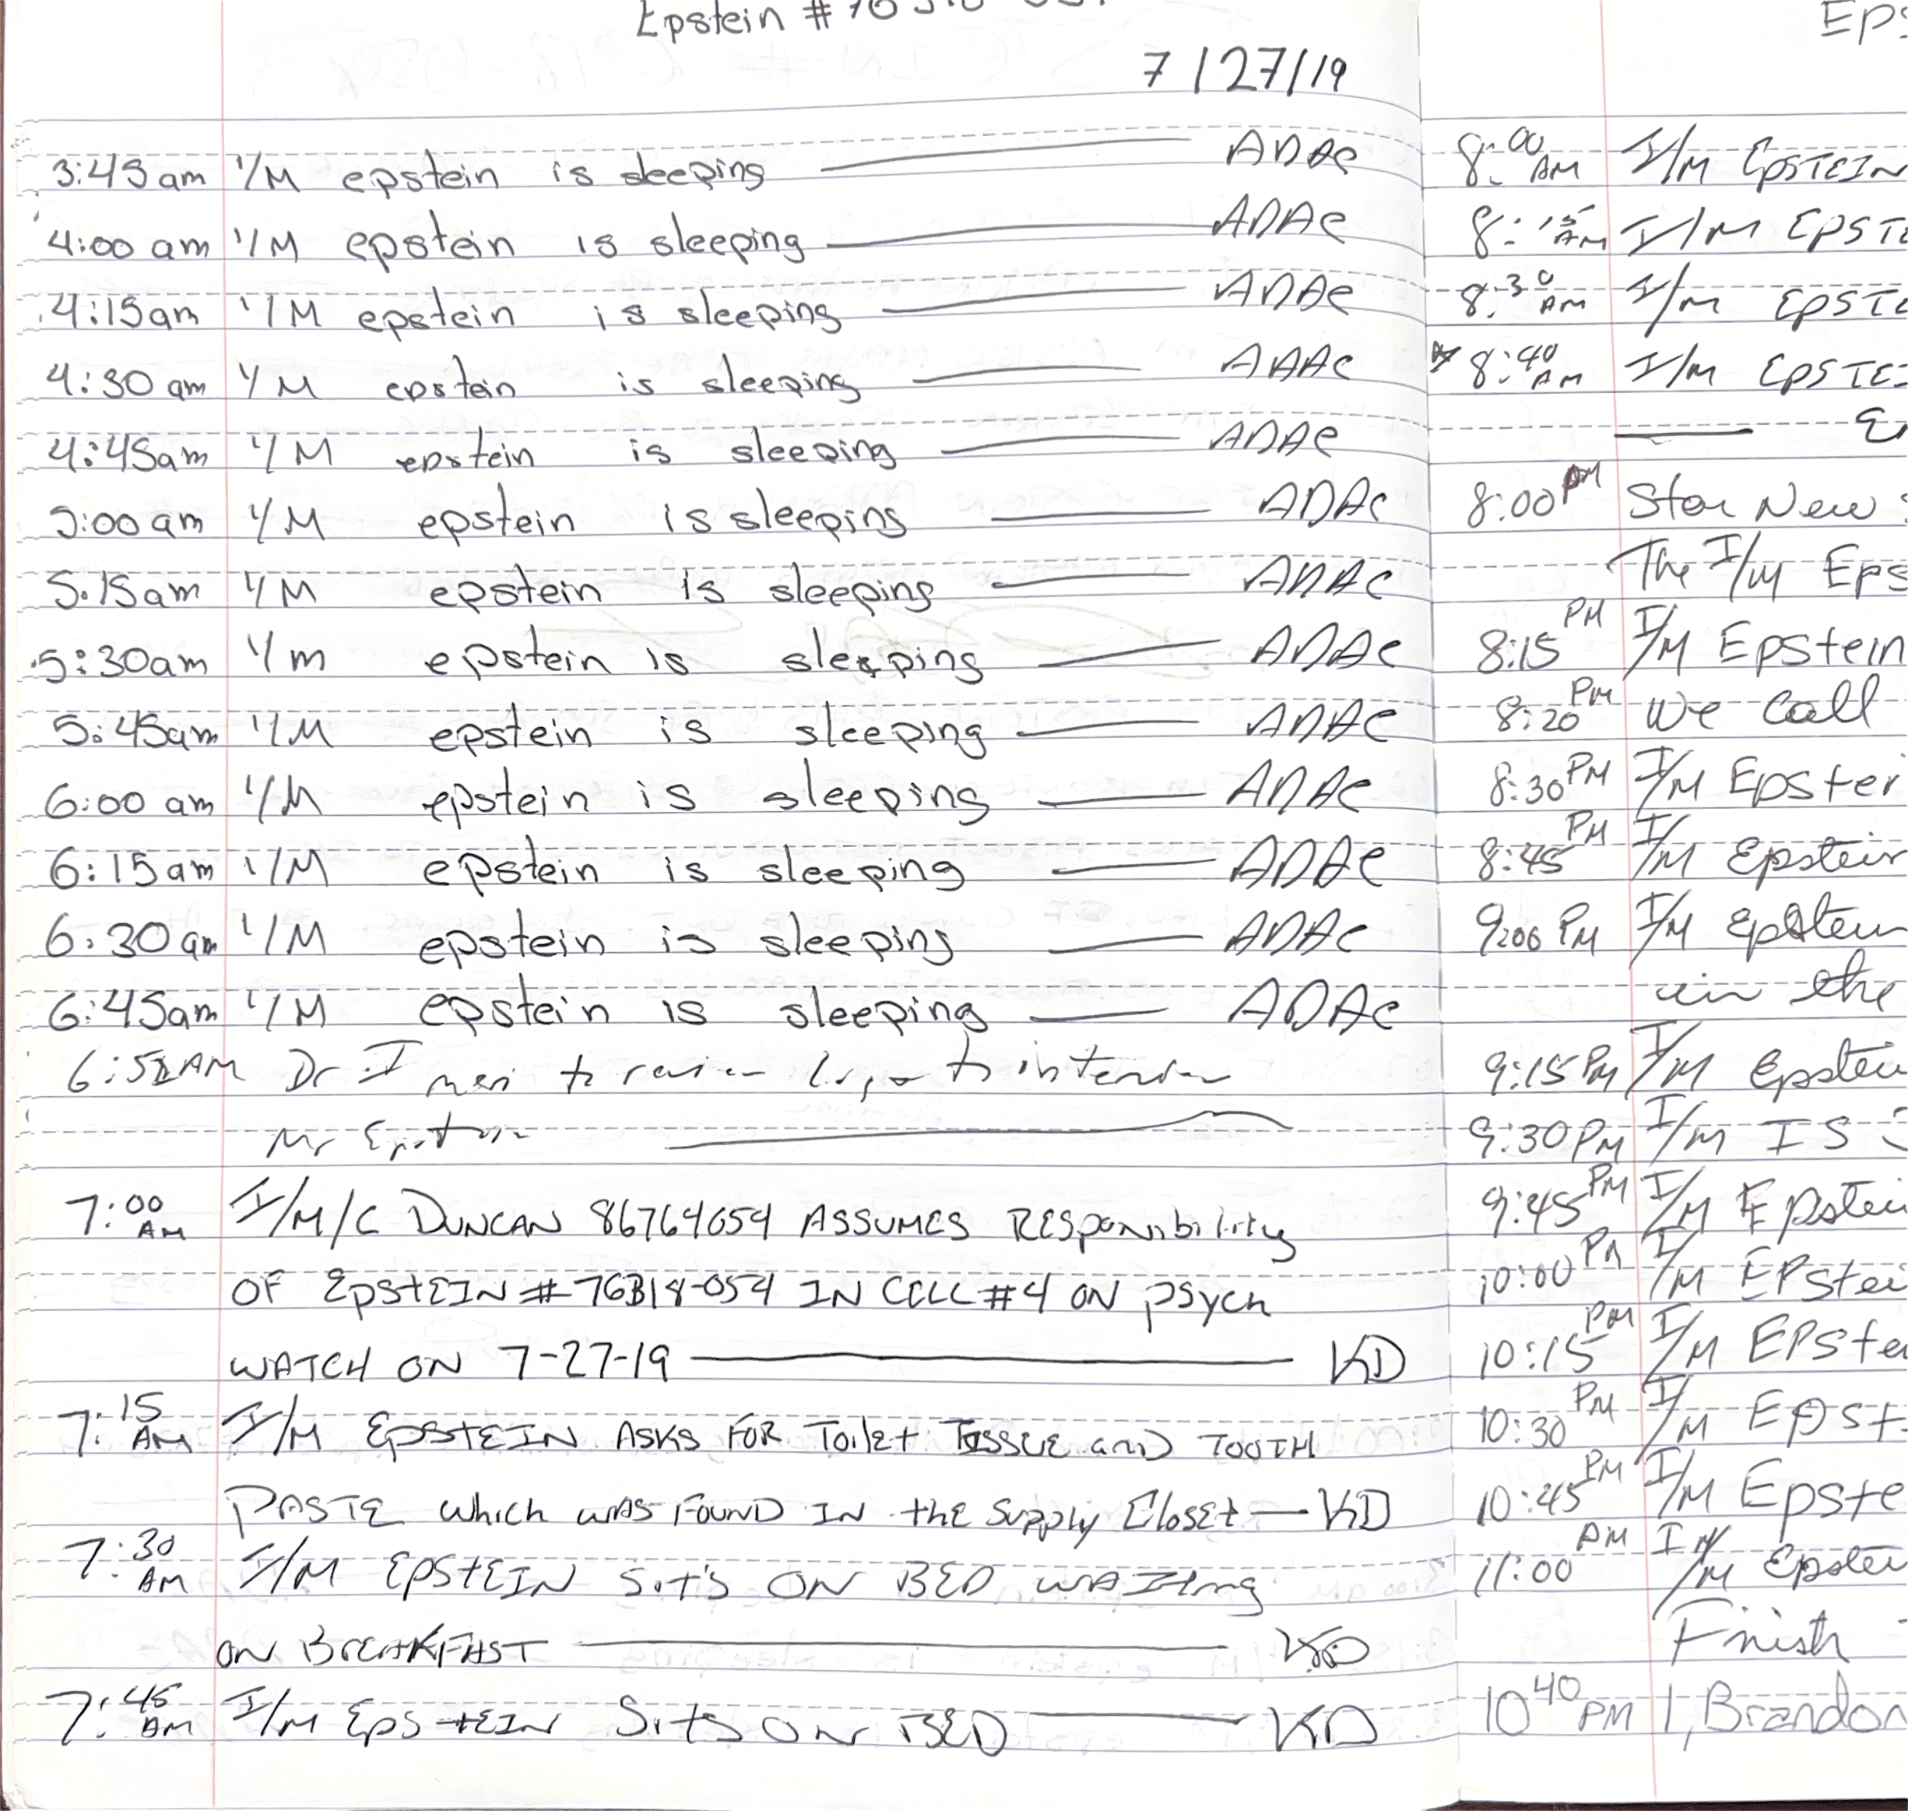 Epstein #
7/27/19
3:45am I/M epstein is sleeping ADAC
4:00 am I/M epstein is sleeping ADAC
4:15am I/M epstein is sleeping ADAC
4:30 am I/M epstein is sleeping ADAC
4:45am I/M epstein is sleeping ADAC
5:00 am I/M epstein is sleeping ADAC
5:15am I/M epstein is sleeping ADAC
5:30am I/m epstein is sleeping ADAC
5:45am I/M epstein is sleeping ADAC
6:00 am I/M epstein is sleeping ADAC
6:15am I/M epstein is sleeping ADAC
6:30am I/M epstein is sleeping ADAC
6:45am I/M epstein is sleeping ADAC
AM Dr. to review to
Mr Epstein
7:00 AM I/M/C DUNCAN 86764054 ASSUMES RESponsibility
OF EpstEIN #76318-054 IN CELL #4 ON psych
WATCH ON 7-27-19 KD
7:15 AM I/M EpstEIN ASKS FOR Toilet TISSUE and TOOTH
PASTE which was FOUND IN the Supply CLOSEt KD
7:30 AM I/M EPStEIN Sits ON BED WAIting
ON BREAKFAST KD
7:45 AM I/M EpstEIN Sits ON BED KD
Eps
8:00 AM I/M EpSTEIN
8:15 AM I/M EPSTE
8:30 AM I/M EPSTE
8:40 AM I/M EpSTE
8:00 PM New
The I/M Eps
8:15 PM I/M Epstein
8:20 PM We Call
8:30 PM I/M Epstei
8:45 PM I/M Epstein
PM I/M Epstein
in the
9:15 PM I/M Epstei
9:30 PM I/M IS
9:45 PM I/M Epstei
10:00 PM I/M EPstei
10:15 PM I/M EPste
10:30 PM I/M Epst
10:45 PM I/M Epste
11:00 PM I/M Epstei
Finish
10 40 PM I, Brandon